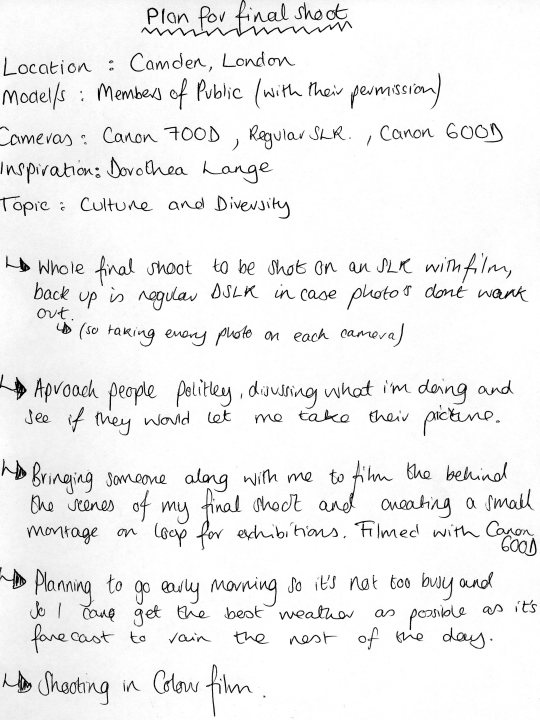 Plan for final shoot
Location : Camden, London
Model/s : Members of Public (with their permission)
Cameras : Canon 700D , Regular SLR. , Canon 600D
Inspiration: Dorothea Lange
Topic : Culture and Diversity
↳ Whole final shoot to be shot on an SLR with film,
back up is regular DSLR in case photo's dont work
out.
↳ (so taking every photo on each camera)
↳ Aproach people politley, discussing what i'm doing and
see if they would let me take their picture.
↳ Bringing someone along with me to film the behind
the scenes of my final shoot and creating a small
montage on loop for exhibitions. Filmed with Canon
600D
↳ Planning to go early morning so it's not too busy and
so I can get the best weather as possible as it's
forecast to rain the rest of the day.
↳ Shooting in Colour film.